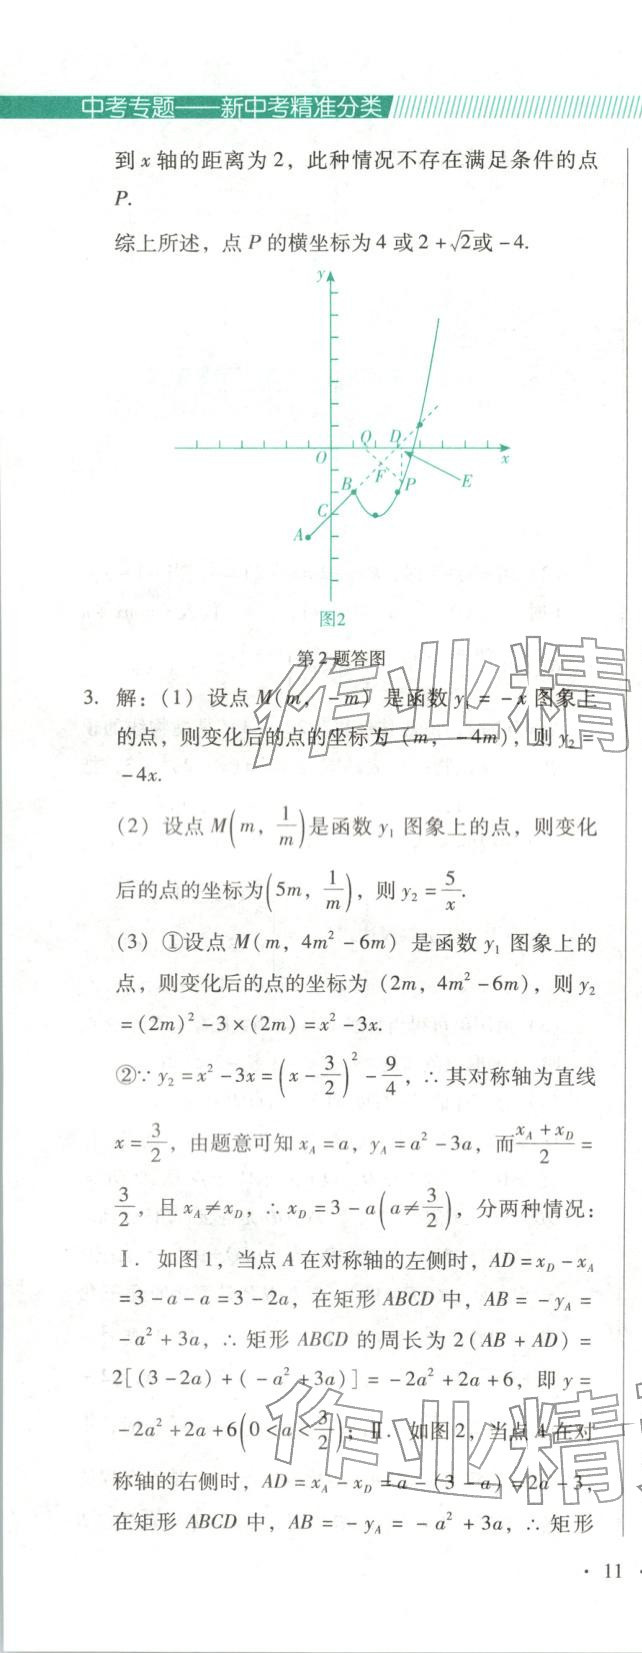 中考专题——新中考精准分类
到 x 轴的距离为 2，此种情况不存在满足条件的点
P.
综上所述，点 P 的横坐标为 4 或 2 + √2 或 - 4.
y
Q D
O x
F P E
B
C
A
图2
第 2 题答图
3. 解：(1) 设点 M(m, -m) 是函数 y₁ = -x 图象上
的点，则变化后的点的坐标为 (m, -4m)，则 y₂ =
-4x.
(2) 设点 M(m, 1/m) 是函数 y₁ 图象上的点，则变化
后的点的坐标为(5m, 1/m)，则 y₂ = 5/x.
(3) ①设点 M(m, 4m² - 6m) 是函数 y₁ 图象上的
点，则变化后的点的坐标为 (2m, 4m² - 6m)，则 y₂
= (2m)² - 3 × (2m) = x² - 3x.
②∵ y₂ = x² - 3x = (x - 3/2)² - 9/4，∴ 其对称轴为直线
x = 3/2，由题意可知 x_A = a，y_A = a² - 3a，而 (x_A + x_D)/2 =
3/2，且 x_A ≠ x_D，∴ x_D = 3 - a(a ≠ 3/2)，分两种情况：
Ⅰ. 如图 1，当点 A 在对称轴的左侧时，AD = x_D - x_A
= 3 - a - a = 3 - 2a，在矩形 ABCD 中，AB = - y_A =
- a² + 3a，∴ 矩形 ABCD 的周长为 2(AB + AD) =
2[(3 - 2a) + (- a² + 3a)] = - 2a² + 2a + 6，即 y =
- 2a² + 2a + 6(0 < a < 3/2)；Ⅱ. 如图 2，当点 A 在对
称轴的右侧时，AD = x_A - x_D = a - (3 - a) = 2a - 3，
在矩形 ABCD 中，AB = - y_A = - a² + 3a，∴ 矩形
· 11 ·
作业精
作业精